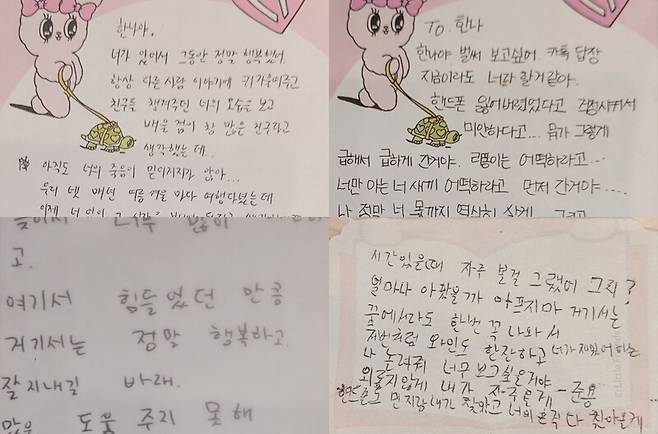 한나야,
너가 있어서 그동안 정말 행복했어.
항상 다른사람 이야기에 귀기울여주고
친구들 챙겨주던 너의 모습을 보고
배울 점이 참 많은 친구라고
생각했는데..
아직도 너의 죽음이 믿어지지가 않아...
우리 넷 매년 여름 여행다녔는데
TO. 한나
한나야 벌써 보고싶어. 카톡 답장
지금이라도 너가 할거같아.
핸드폰 잃어버렸었다고 걱정시켜서
미안하다고... 뭐가 그렇게
급해서 급하게 간거야. 어떡하라고...
너만 아는 너 새끼 어떡하라고 먼저 간거야....
나 정말 너 몫까지 열심히 살게
고.
여기서 힘들었던 만큼
거기서는 정말 행복하고.
잘지내길 바래.
많은 도움 주지 못해
시간있을때 자주 볼걸 그랬어 그치?
얼마나 아팠을까 아프지마 거기서는
꿈에서라도 한번 꼭 나와서
저번처럼 와인도 한잔하고 너가 재밌어하는
나 놀려줘 너무 보고싶을거야
외롭지않게 내가 자주올게 -준용
핸드폰도 먼지랑 내가 찾았고 너의 흔적 다 찾아올게